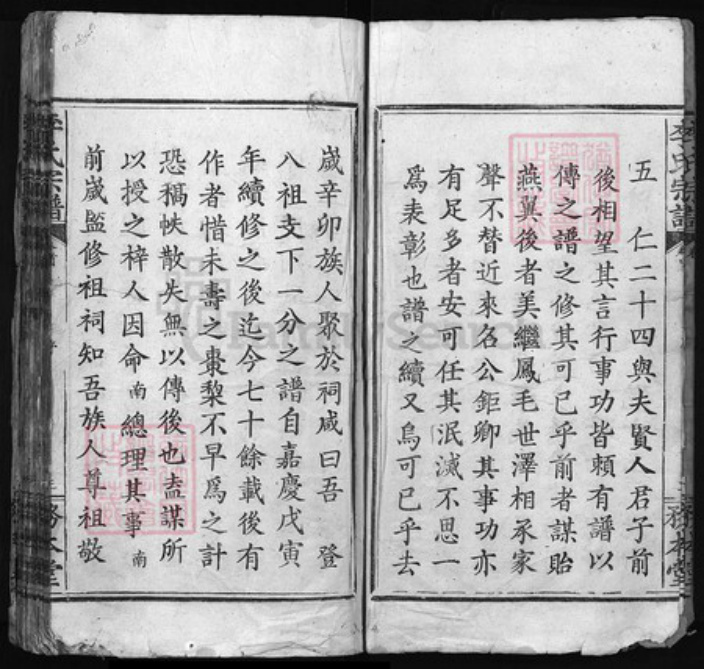 五　仁二十四與夫賢人君子前
後相望其言行事功皆頼有譜以
傳之譜之修其可已乎前者謀貽
燕翼後者美繼鳳毛世澤相承家
聲不替近來名公鉅卿其事功亦
有足多者安可任其泯滅不思一
爲表彰也譜之續又烏可已乎去
歲辛卯族人聚於祠咸曰吾　登
八祖支下一分之譜自嘉慶戊寅
年續修之後迄今七十餘載後有
作者惜未壽之棗梨不早爲之計
恐稿帙散失無以傳後也盍謀所
以授之梓人因命南總理其事南
前歲監修祖祠知吾族人尊祖敬
李氏宗譜
務本堂
李氏宗譜
務本堂
FamilySearch